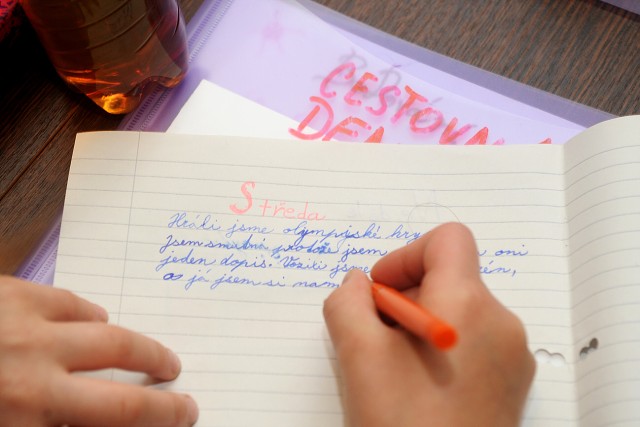 CESTOVN
DEN
Středa
Hráli jsme olympijské hry
jsem jsem oni
jeden dopis. Vozili jsme
já jsem si nam